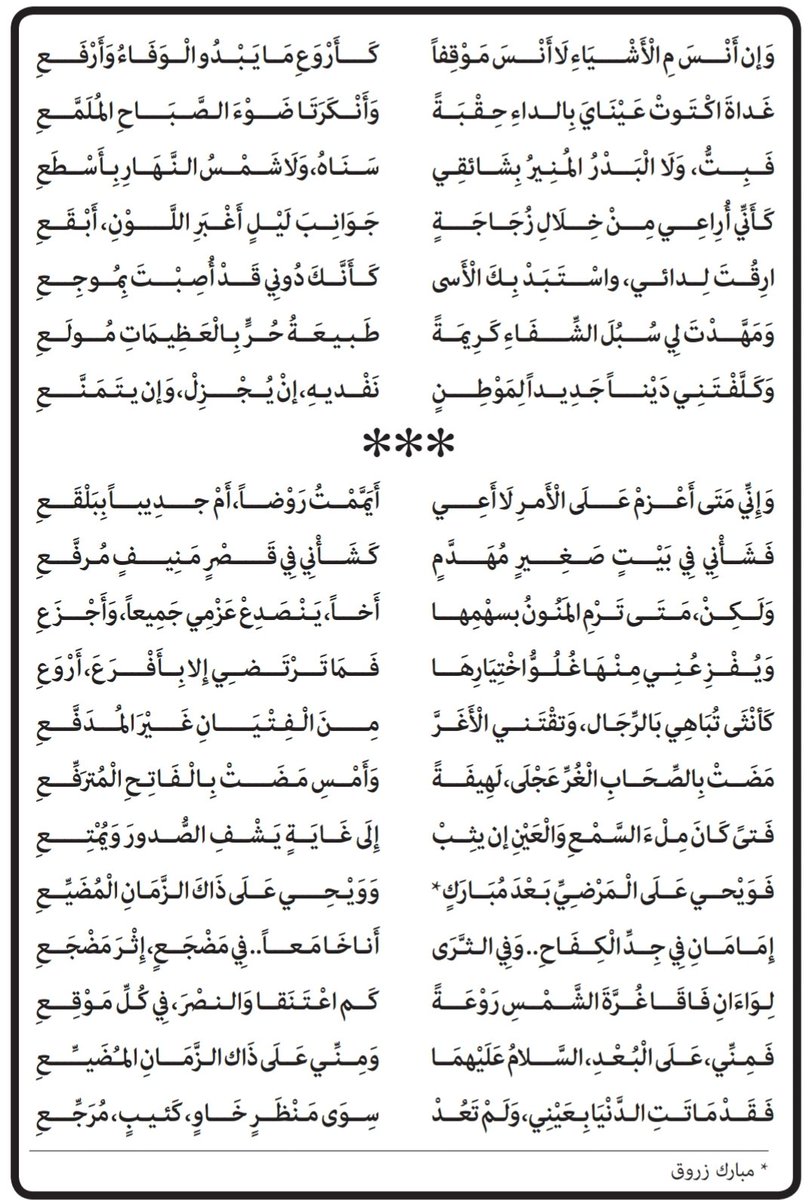 وَإِن أَنْسَ مِ الْأَشْيَاءِ لَا أَنْسَ مَوْقِفاً كَأَرْوَعِ مَا يَبْدُو الْوَفَاءُ وَأَرْفَعِ
غَداةَ اكْتَوتْ عَيْنَايَ بِالداءِ حِقْبَةً وَأَنْكَرَتَا ضَوْءَ الصَّبَاحِ المُلَمَّعِ
فَبِتُّ، وَلَا الْبَدْرُ المُنِيرُ بِشَائقِي سَنَاهُ، وَلَا شَمْسُ النَّهَارِ بِأَسْطَعِ
كَأَنِّي أُرَاعِي مِنْ خِلَالِ زُجَاجَةٍ جَوَانِبَ لَيْلٍ أَغْبَرِ اللَّوْنِ، أَبْقَعِ
ارِقْتَ لِدائي، واسْتَبَدْ بِكَ الْأَسى كَأَنَّكَ دُونِي قَدْ أُصِبْتَ بِمُوجِعِ
وَمَهَّدْتَ لِي سُبُلَ الشِّفَاءِ كَرِيمَةً طَبِيعَةُ حُرٍّ بِالْعَظِيمَاتِ مُولَعِ
وَكَلَّفْتَنِي دَيْناً جَدِيداً لِمَوْطِنٍ نَفْديهِ، إنْ يُجْزِلْ، وَإن يتَمَنَّعِ
***
وَإِنِّي مَتَى أَعْزمْ عَلَى الْأَمرِ لَا أَعِي أَيَمَّمْتُ رَوْضاً، أَمْ جديباً بِبَلْقَعِ
فَشَأْنِي فِي بَيْتٍ صَغِيرٍ مُهَدَّمٍ كَشَأْنِي فِي قَصْرٍ مَنِيفٍ مُرفَّعِ
وَلَكِنْ، مَتَى تَرْمِ المَنُونُ بسهْمِها أَخاً، يَنْصَدِعْ عَزْمِي جَمِيعاً، وَأَجْزَعِ
وَيُفْزِعُنِي مِنْهَا غُلُوُّ اخْتِيَارِهَا فَمَا تَرْتَضِي إِلا بِأَفْرَعَ، أَرْوَعِ
كَأنْثَى تُبَاهِي بَالرِّجَال، وَتقْتَني الْأَغَرَّ مِنَ الْفِتْيَانِ غَيْرَ المُدَفَّعِ
مَضَتْ بِالصِّحَابِ الْغُرِّ عَجْلَى، لَهِيفَةً وَأَمْسِ مَضَتْ بِالْفَاتِحِ الْمُترَفِّعِ
فَتىً كَانَ مِلْءَ السَّمْعِ وَالْعَيْنِ إن يثِبْ إِلَى غَايَةٍ يَشْفِ الصُّدورَ وَيُمْتِعِ
فَوَيْحي عَلَى الْمَرْضيِّ بَعْدَ مُبَارَكٍ* وَوَيْحِي عَلَى ذَاكَ الزَّمَانِ الْمُضَيِّعِ
إِمَامَانِ فِي جِدِّ الْكِفَاحِ.. وَفِي الثَّرَى أَناخَا مَعاً.. فِي مَضْجَعٍ، إِثْرَ مَضْجَعِ
لِوَاءَانِ فَاقَا غُرَّةَ الشَّمْسِ رَوْعَةً كَم اعْتَنَقا وَالنصْرَ، فِي كُلِّ مَوْقِعِ
فَمِنِّي، عَلَى الْبُعْدِ، السَّلامُ عَلَيْهمَا وَمِنِّي عَلَى ذَاكَ الزَّمَانِ المُضَيِّعِ
فَقَدْ مَاتَتِ الدَّنْيَا بِعَيْنِي، وَلَمْ تَعُدْ سِوَى مَنْظَرٍ خَاوٍ، كَئيبٍ، مُرَجِّعِ
* مبارك زروق